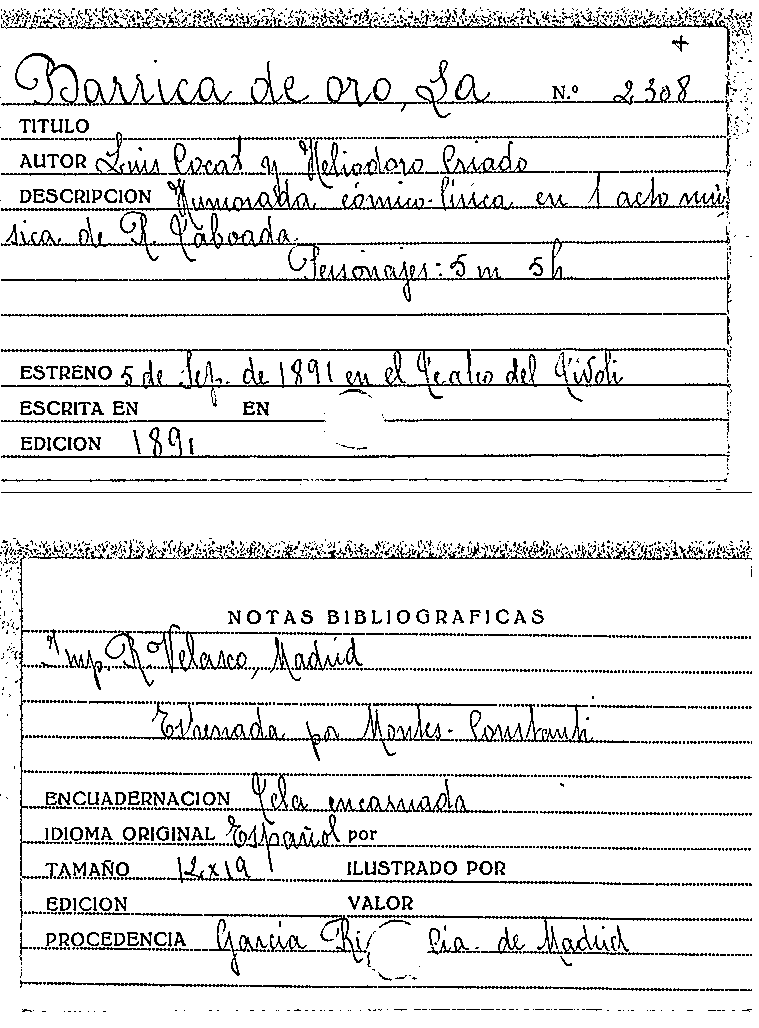 +
Barrica de oro, La N.º 2308
TITULO
AUTOR Luis Cocat y Heliodoro Criado
DESCRIPCION Humorada cómico-lírica en 1 acto mú
sica de R. Taboada
Personajes: 5 m 5 h
ESTRENO 5 de Sep. de 1891 en el Teatro del Tívoli
ESCRITA EN EN
EDICION 1891
NOTAS BIBLIOGRAFICAS
Imp. Rº Velasco, Madrid
Estrenada por Montes-Constanti
ENCUADERNACION Tela encarnada
IDIOMA ORIGINAL Español por
TAMAÑO 12x19 ILUSTRADO POR
EDICION VALOR
PROCEDENCIA García Cía. de Madrid